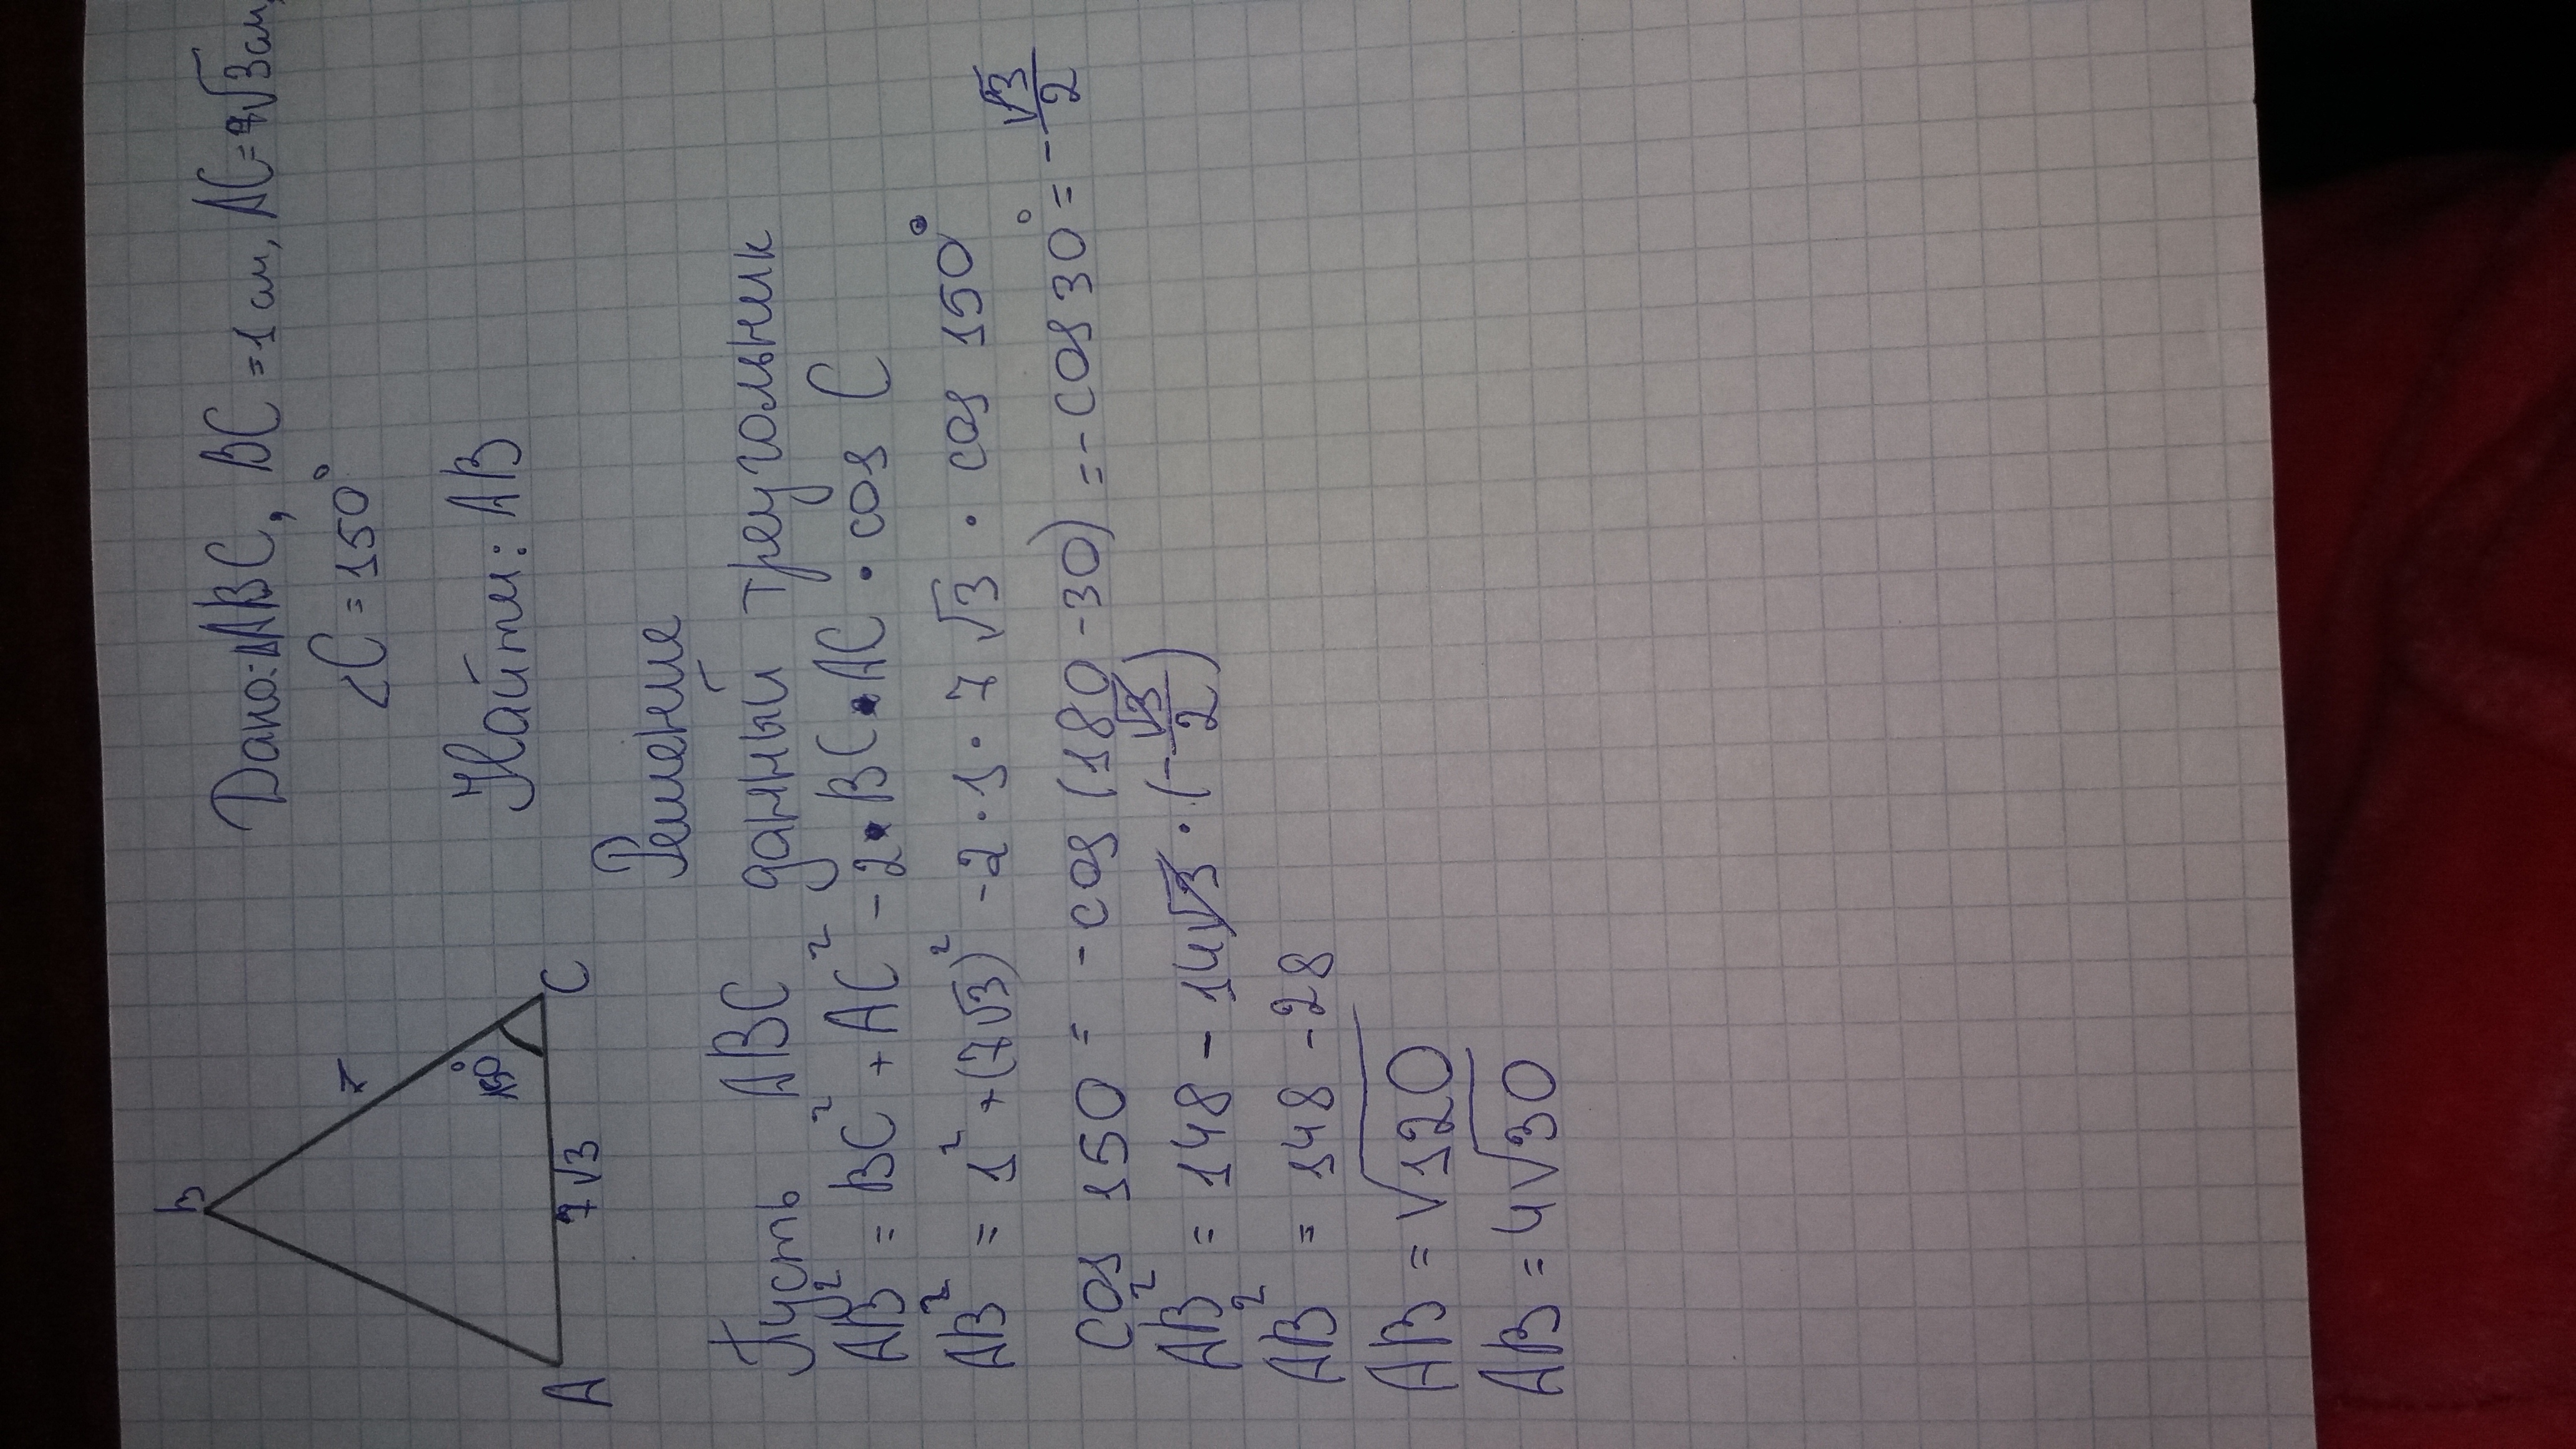 Дано: ΔABC, BC = 1 см, AC = 7√3 см,
∠C = 150°
Найти: AB
B
1
150°
A
7√3
C
Решение
Пусть ABC данный треугольник
AB² = BC² + AC² - 2 · BC · AC · cos C
AB² = 1² + (7√3)² - 2 · 1 · 7√3 · cos 150°
cos 150 = -cos (180 - 30) = -cos 30° = -√3/2
AB² = 148 - 14√3 · (-√3/2)
AB² = 148 - 28
AB = √120
AB = 4√30